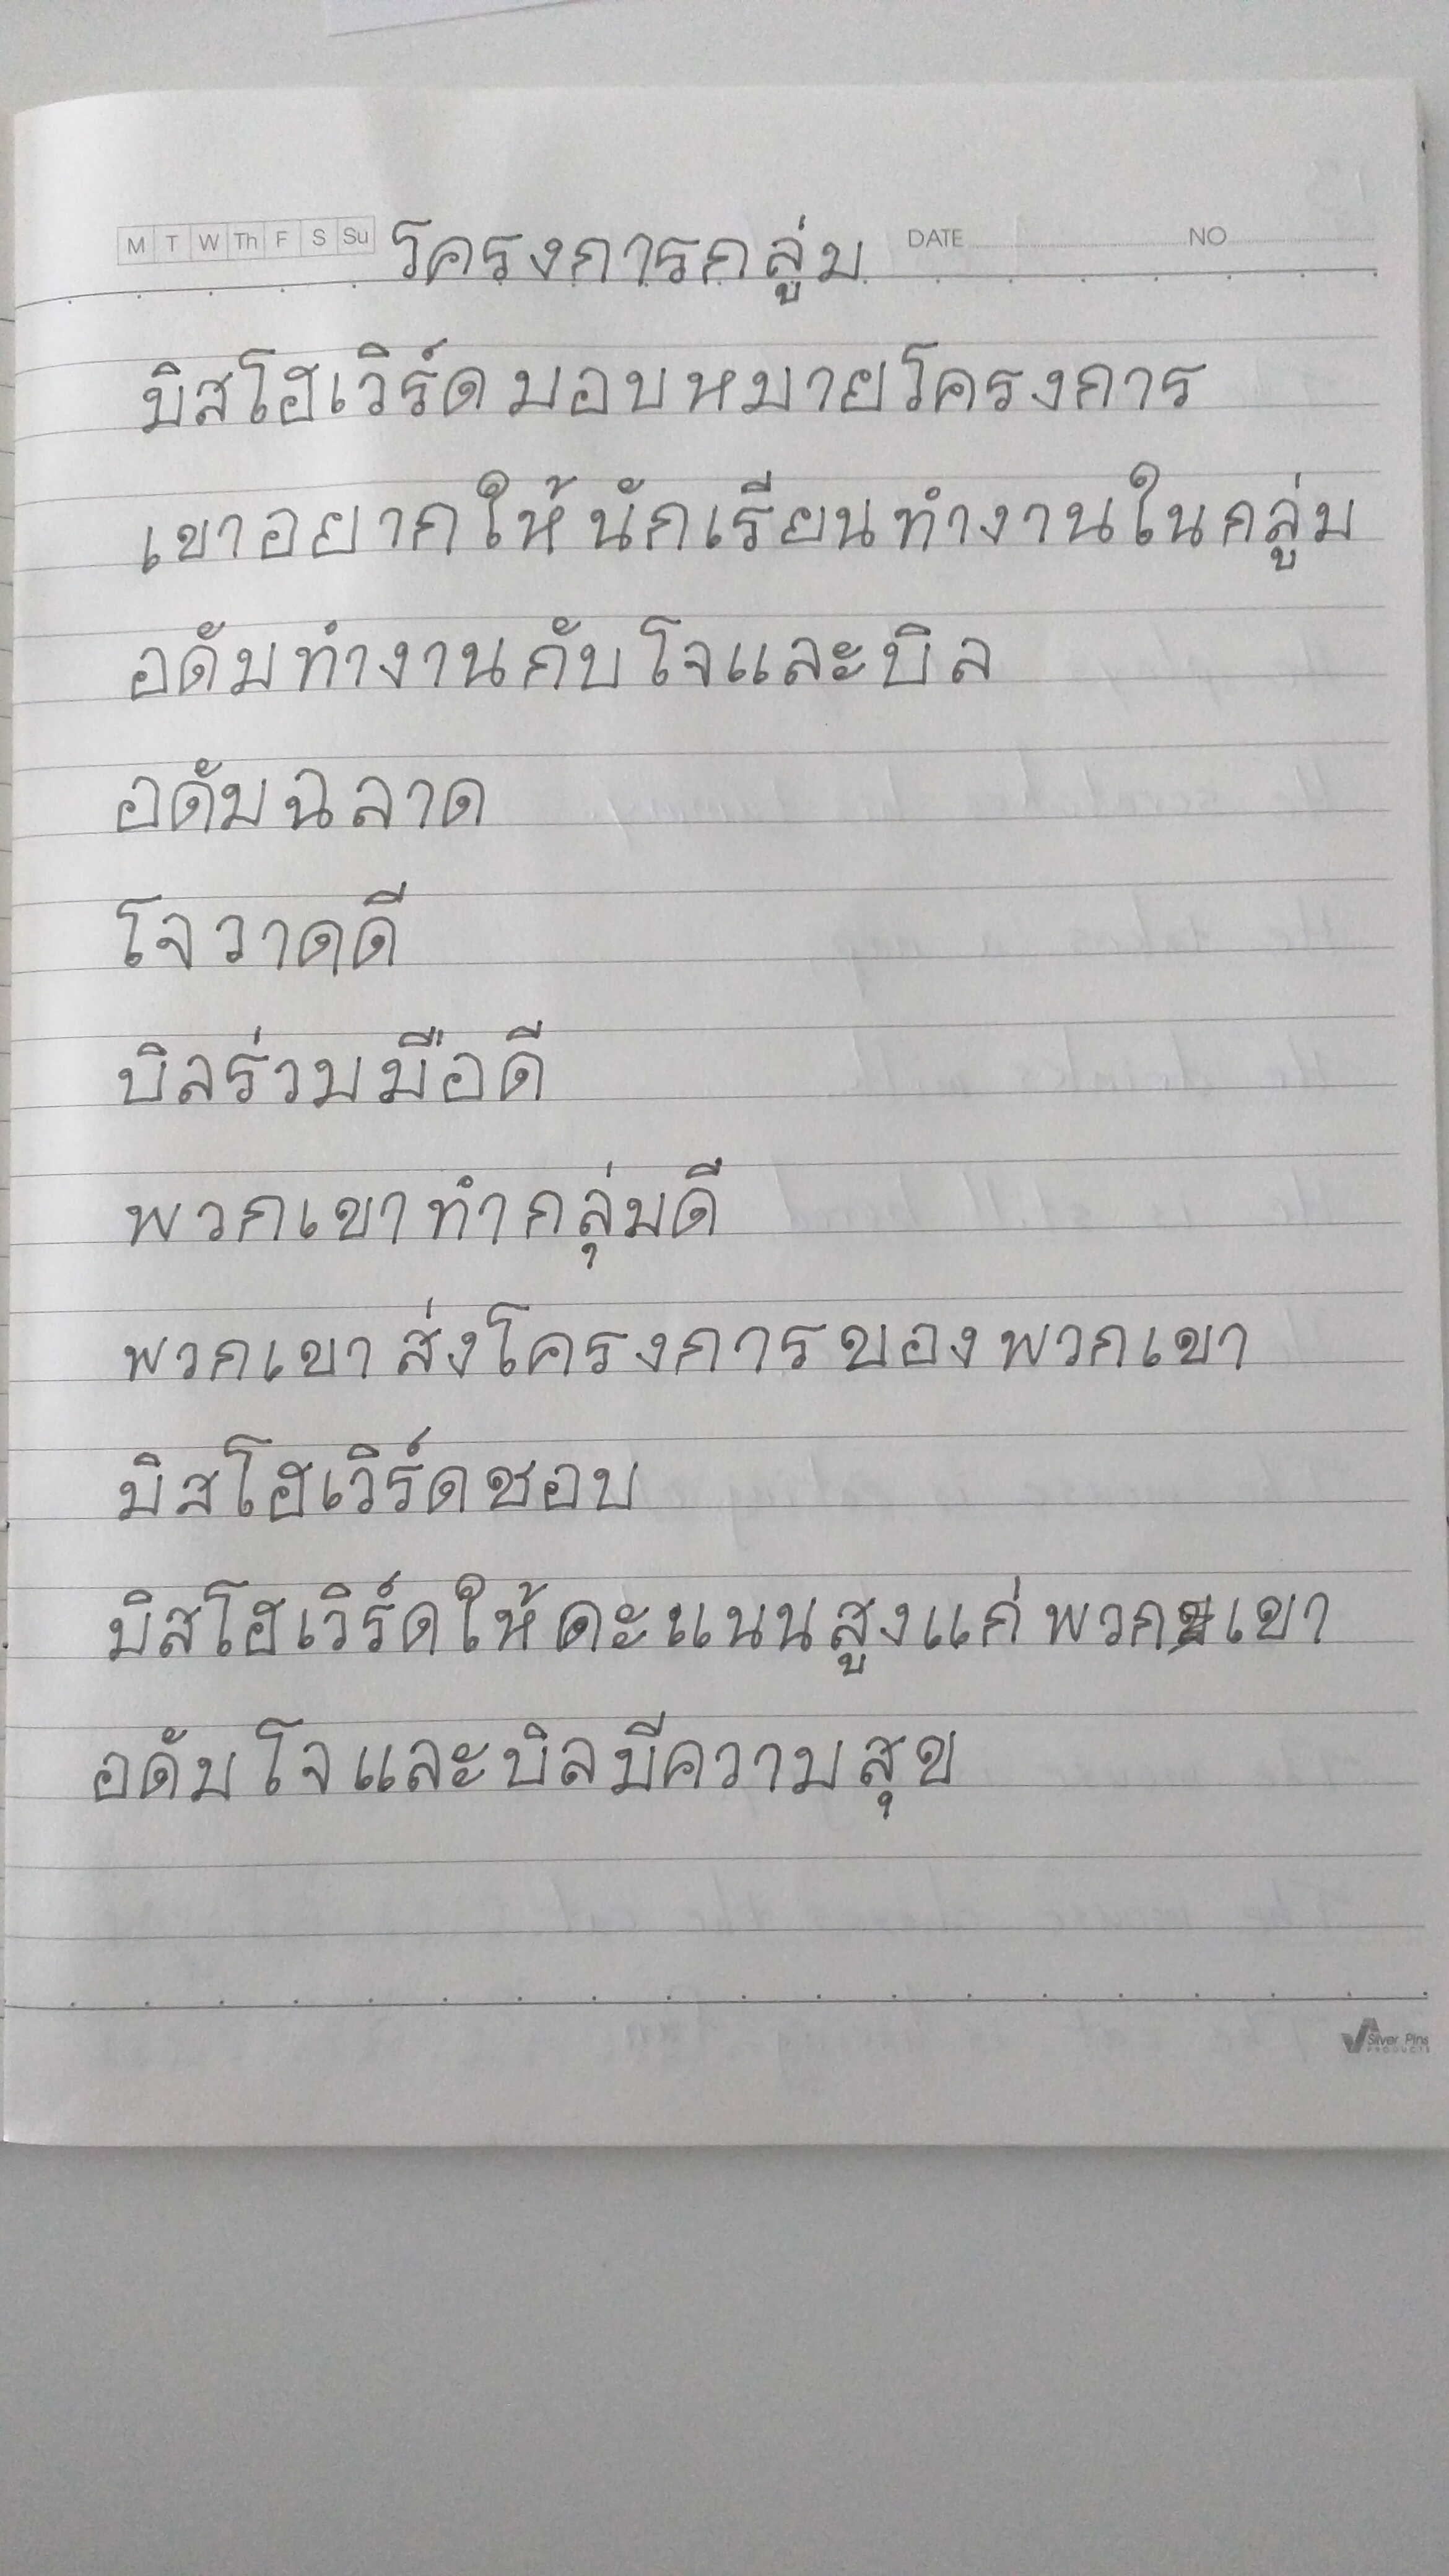 M T W Th F S Su โครงการกลู่ม DATE NO
มิสโฮเวิร์ดมอบหมายโครงการ
เขาอยากให้นักเรียนทำงานในกลู่ม
อดัมทำงานกับโจและบิล
อดัมฉลาด
โจวาดดี
บิลร่วมมือดี
พวกเขาทำกลุ่มดี
พวกเขาส่งโครงการของพวกเขา
มิสโฮเวิร์ดชอบ
มิสโฮเวิร์ดให้คะแนนสูงแก่พวกเขา
อดัมโจและบิลมีความสุข
Silver Pins
PRODUCTS